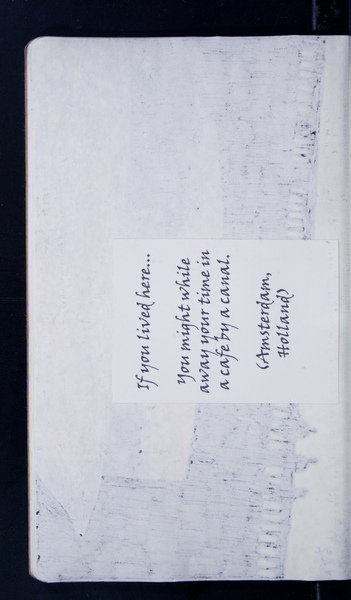 If you lived here...
You might while
away your time in
a cafe by a canal.
(Amsterdam,
Holland)